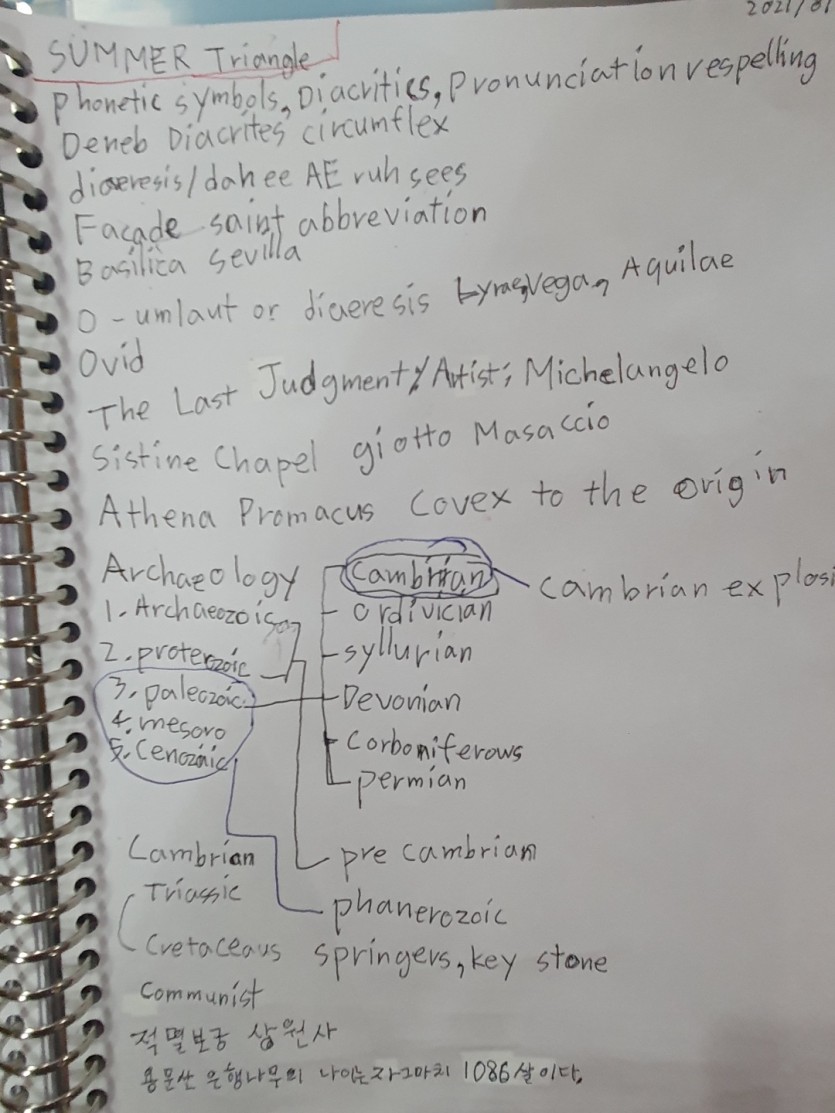 2021/01
SUMMER Triangle
Phonetic symbols, Diacritics, Pronunciation respelling
Deneb Diacrites circumflex
diaeresis/dah ee AE ruh sees
Façade saint abbreviation
Basilica Sevilla
O - umlaut or diaeresis Lyrae, Vega, Aquilae
Ovid
The Last Judgment/Artist; Michelangelo
Sistine Chapel giotto Masaccio
Athena Promacus Covex to the origin
Archaeology Cambrian cambrian explosi
1. Archaeozoic ordivician
2. proterozoic syllurian
3. paleozoic Devonian
4. mesoro
5. Cenozoic Corboniferows
permian
Cambrian pre cambrian
Triassic phanerozoic
Cretaceaus springers, key stone
Communist
적멸보궁 상원사
용문산 은행나무의 나이는 자그마치 1086살이다.